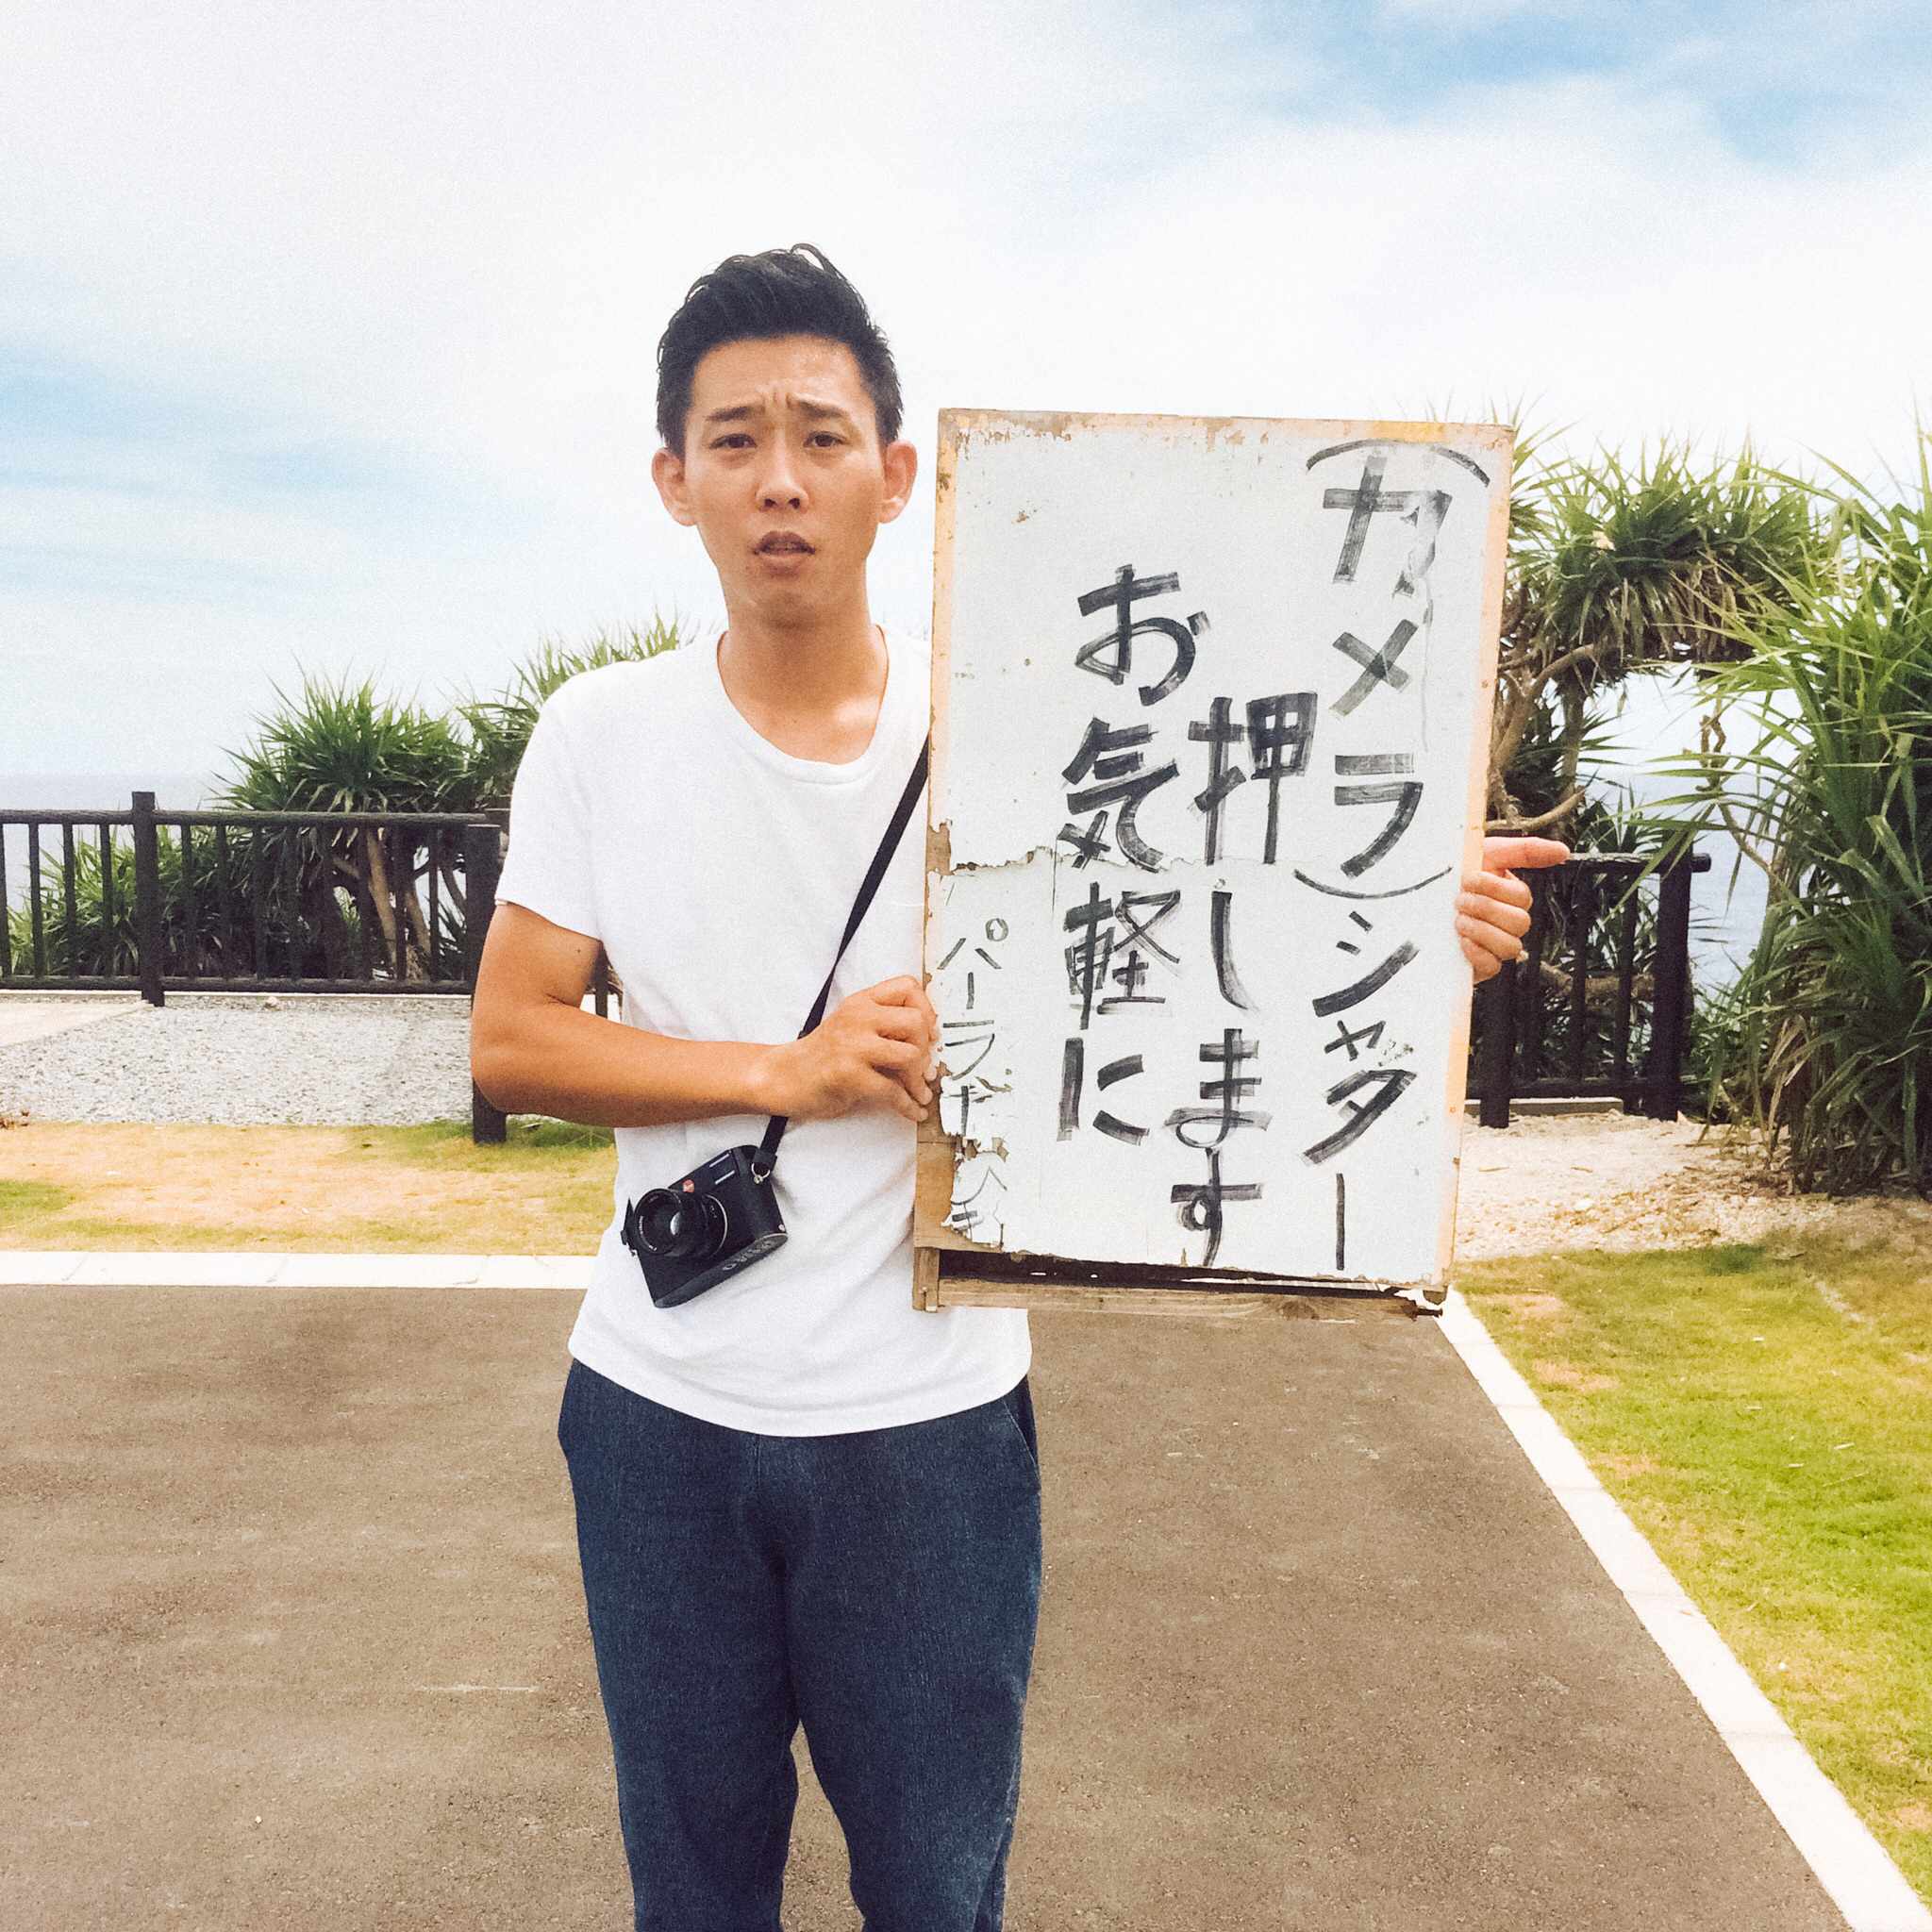 (カメラ)シャター
押します
お気軽に
パーラー